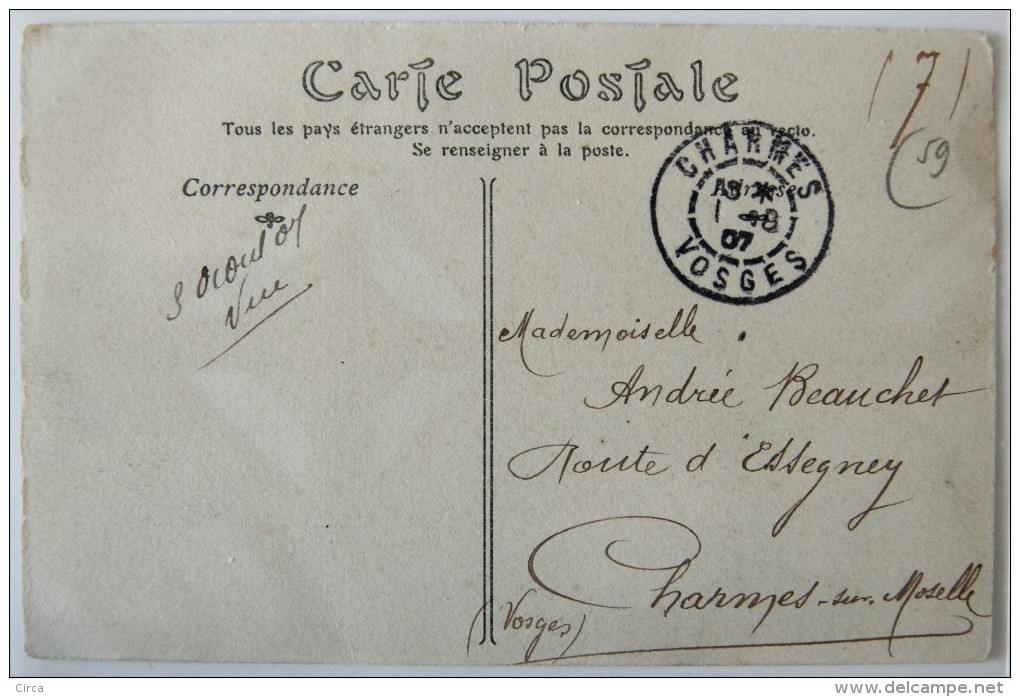 Carte Postale
Tous les pays étrangers n'acceptent pas la correspondance au recto.
Se renseigner à la poste.
Correspondance
Adresse
(7)
59
CHARMES
18 *
1 -8
07
VOSGES
3 Aout 07
Mademoiselle
Andrée Beauchet
Route d'Essegney
Charmes-sur-Moselle
(Vosges)
Circa
www.delcampe.net